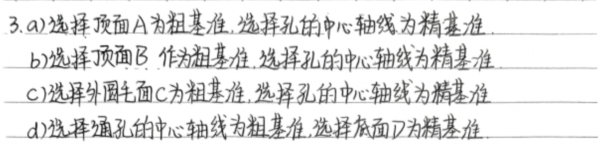 3.a)选择顶面A为粗基准,选择孔的中心轴线为精基准.
b)选择顶面B 作为粗基准,选择孔的中心轴线为精基准
c)选择外圆毛面C为粗基准,选择孔的中心轴线为精基准
d)选择通孔的中心轴线为粗基准,选择底面D为精基准.